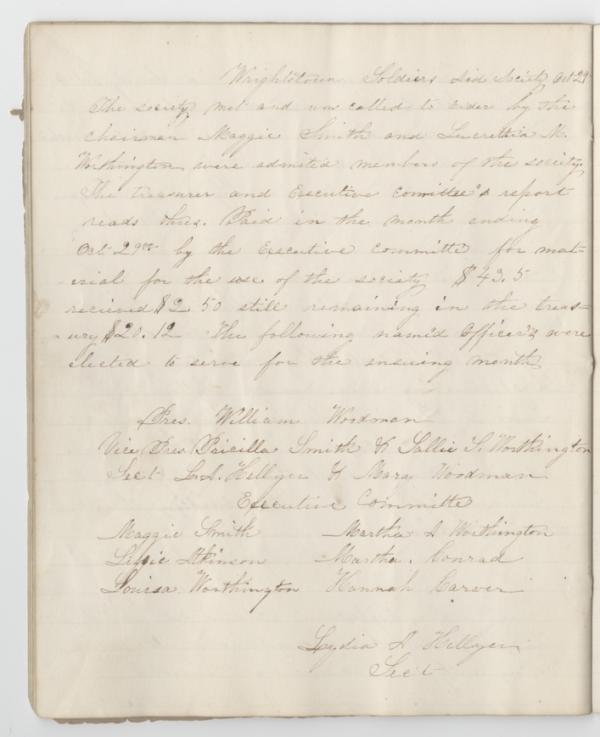 Wrightstown Soldiers Aid Society Oct 29
The society met and was called to order by the
chairman Maggie Smith and Lucrettia M.
Worthington were admitted members of the society
The treasurer and Executive Committee's report
reads thus. Paid in the month ending
Oct 29th by the Executive Committe for mat-
erial for the use of the society $43.5
recieved $2.50 still remaining in the treas-
ury $20.12 The following named Officer's were
elected to serve for the ensuing month
Pres. William Woodman
Vice Pres Pricilla Smith & Sallie S. Worthington
Sect L. A. Hellyer & Mary Woodman
Executive Committe
Maggie Smith Martha A Worthington
Lizzie Atkinson Martha. Conrad
Louisa Worthington Hannah Carver
Lydia A Hellyer
Sect